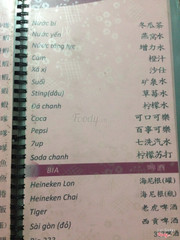 Nước bí 冬瓜茶
Nước yến 燕窝水
Nước tăng lực 增力水
Cam 橙汁
Xá xị 沙仕
Suối 矿泉水
Sting(dâu) 草莓水
Đá chanh 柠檬水
Coca 可口可樂
Pepsi 百事可樂
7up 七洗汽水
Soda chanh 柠檬苏打
BIA 啤酒
Heineken Lon 海尼根(罐)
Heineken Chai 海尼根(瓶)
Tiger 老虎啤酒
Sài gòn (đỏ) 西貢啤酒
Bia 333